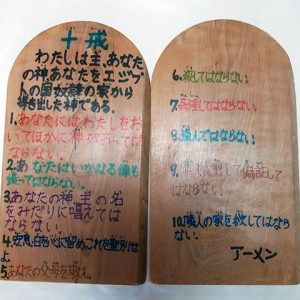 十戒
わたしは主、あなた
の神あなたをエジプ
トの国奴隷の家から
導き出した神である。
1.あなたにはわたしをお
いてほかに神があっては
ならない。
2.あなたはいかなる像も
造ってはならない。
3.あなたの神、主の名
をみだりに唱えては
ならない。
4.安息日を心に留め、これを聖別せ
よ。
5.あなたの父母を敬え。
6.殺してはならない。
7.姦淫してはならない。
8.盗んではならない。
9.に関して偽証して
はならない。
10.隣人の家を欲してはならな
い。
アーメン